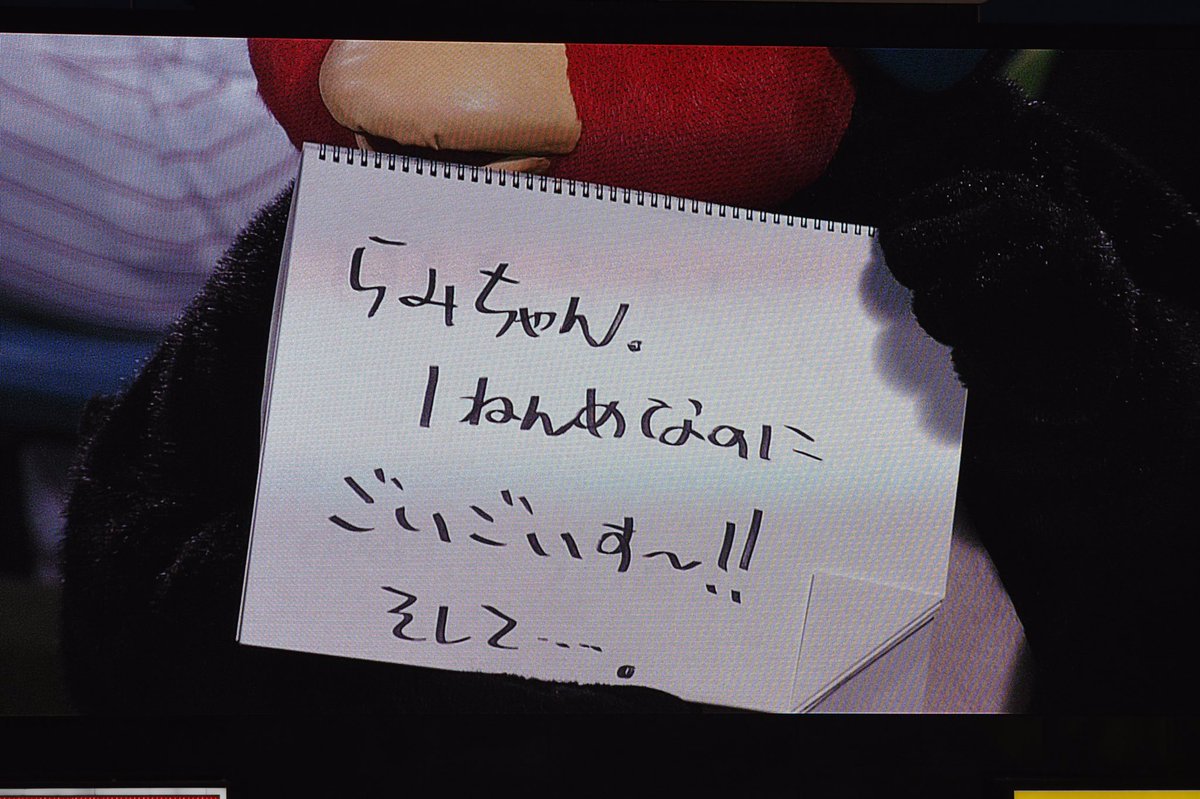 らみちゃん。
1ねんめなのに
ごいごいす〜!!
そして…。